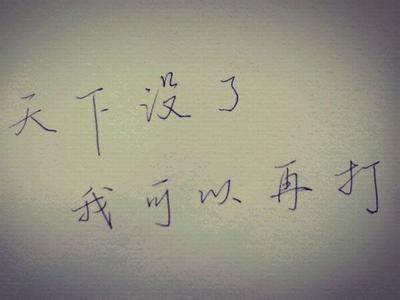 天下没了
我可以再打